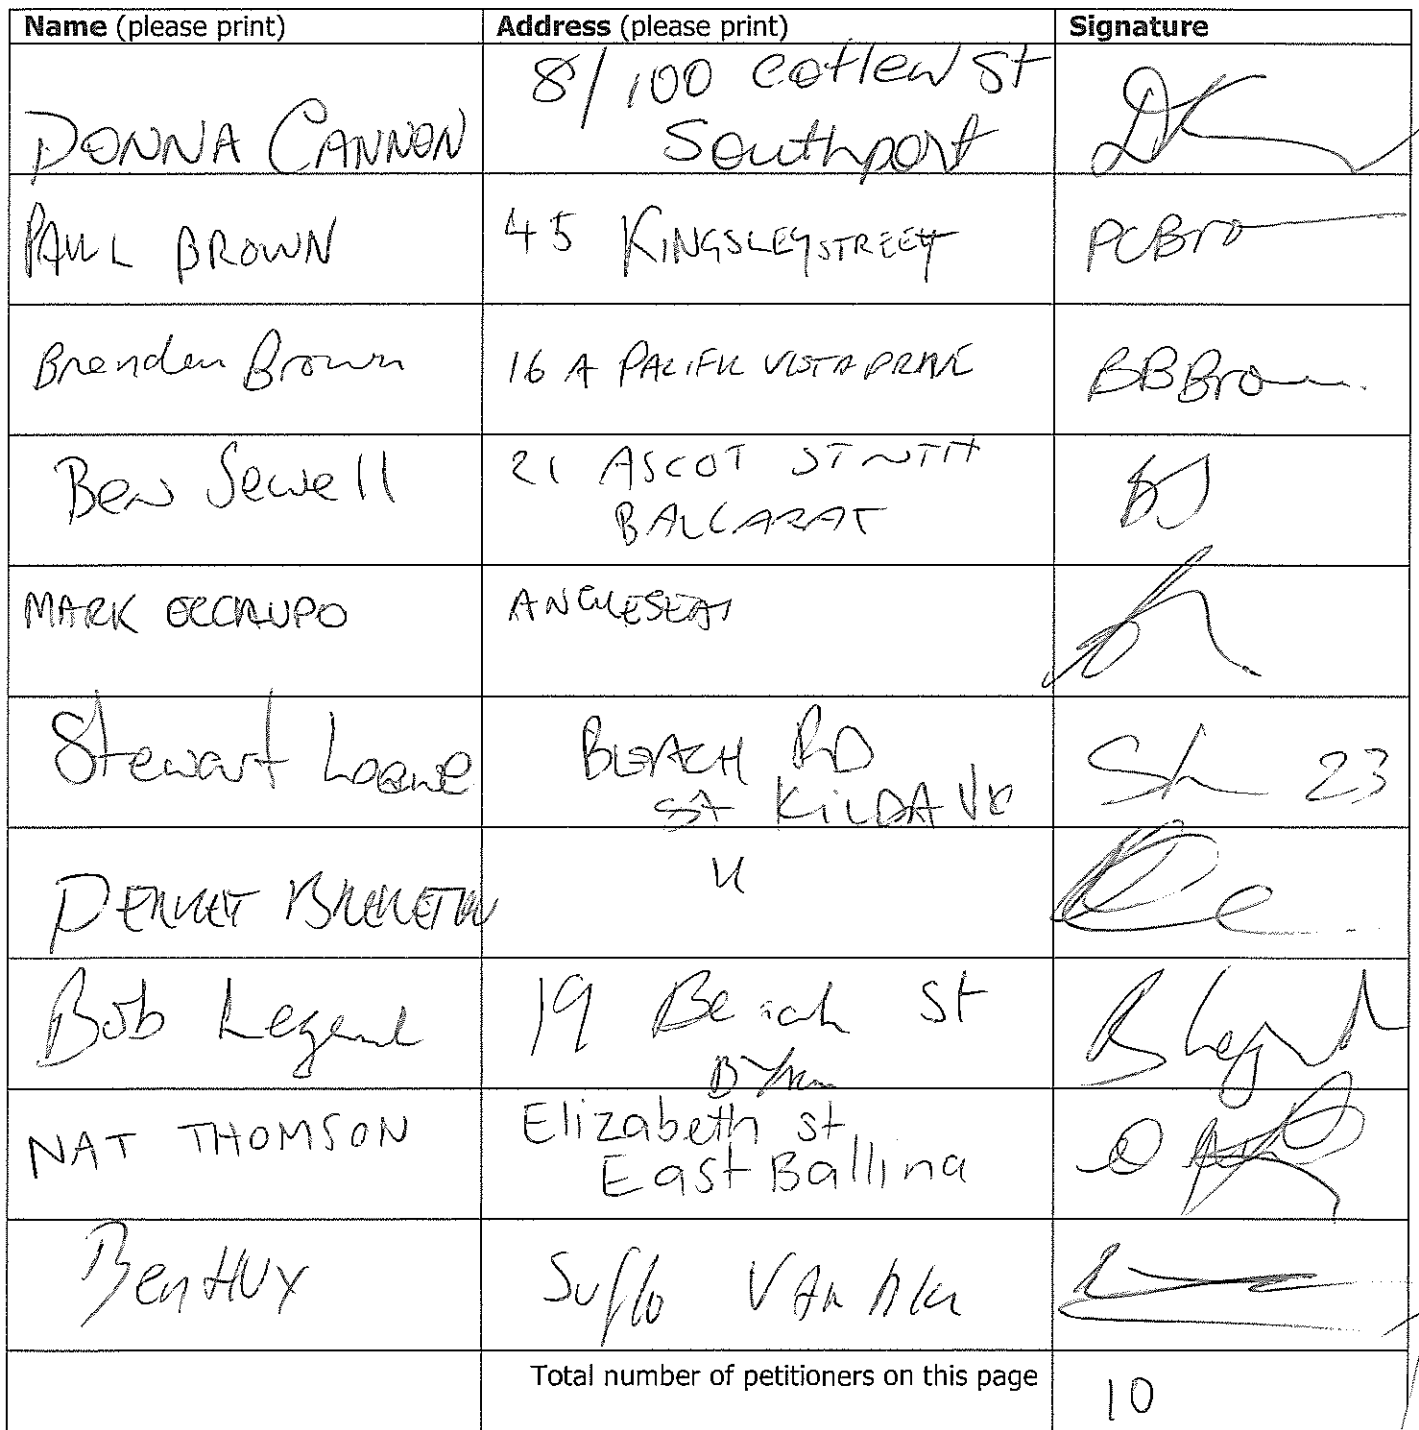 Name (please print) Address (please print) Signature
8/100 Cotlew St
DONNA CANNON Southport
PAUL BROWN 45 KINGSLEY STREET PCBro
Brenden Brown 16 A PACIFIC VISTA DRIVE BBBrown
Ben Sewell 21 ASCOT ST NTH
BALLARAT
MARK OCCHLUPO ANGLESEA
Stewart Loewe BEACH RD
ST KILDA VIC
23
DERMET BRERETON
Bob Legend 19 Beach St
Byron
B Legend
NAT THOMSON Elizabeth st
East Ballina
Ben HUX
Total number of petitioners on this page 10